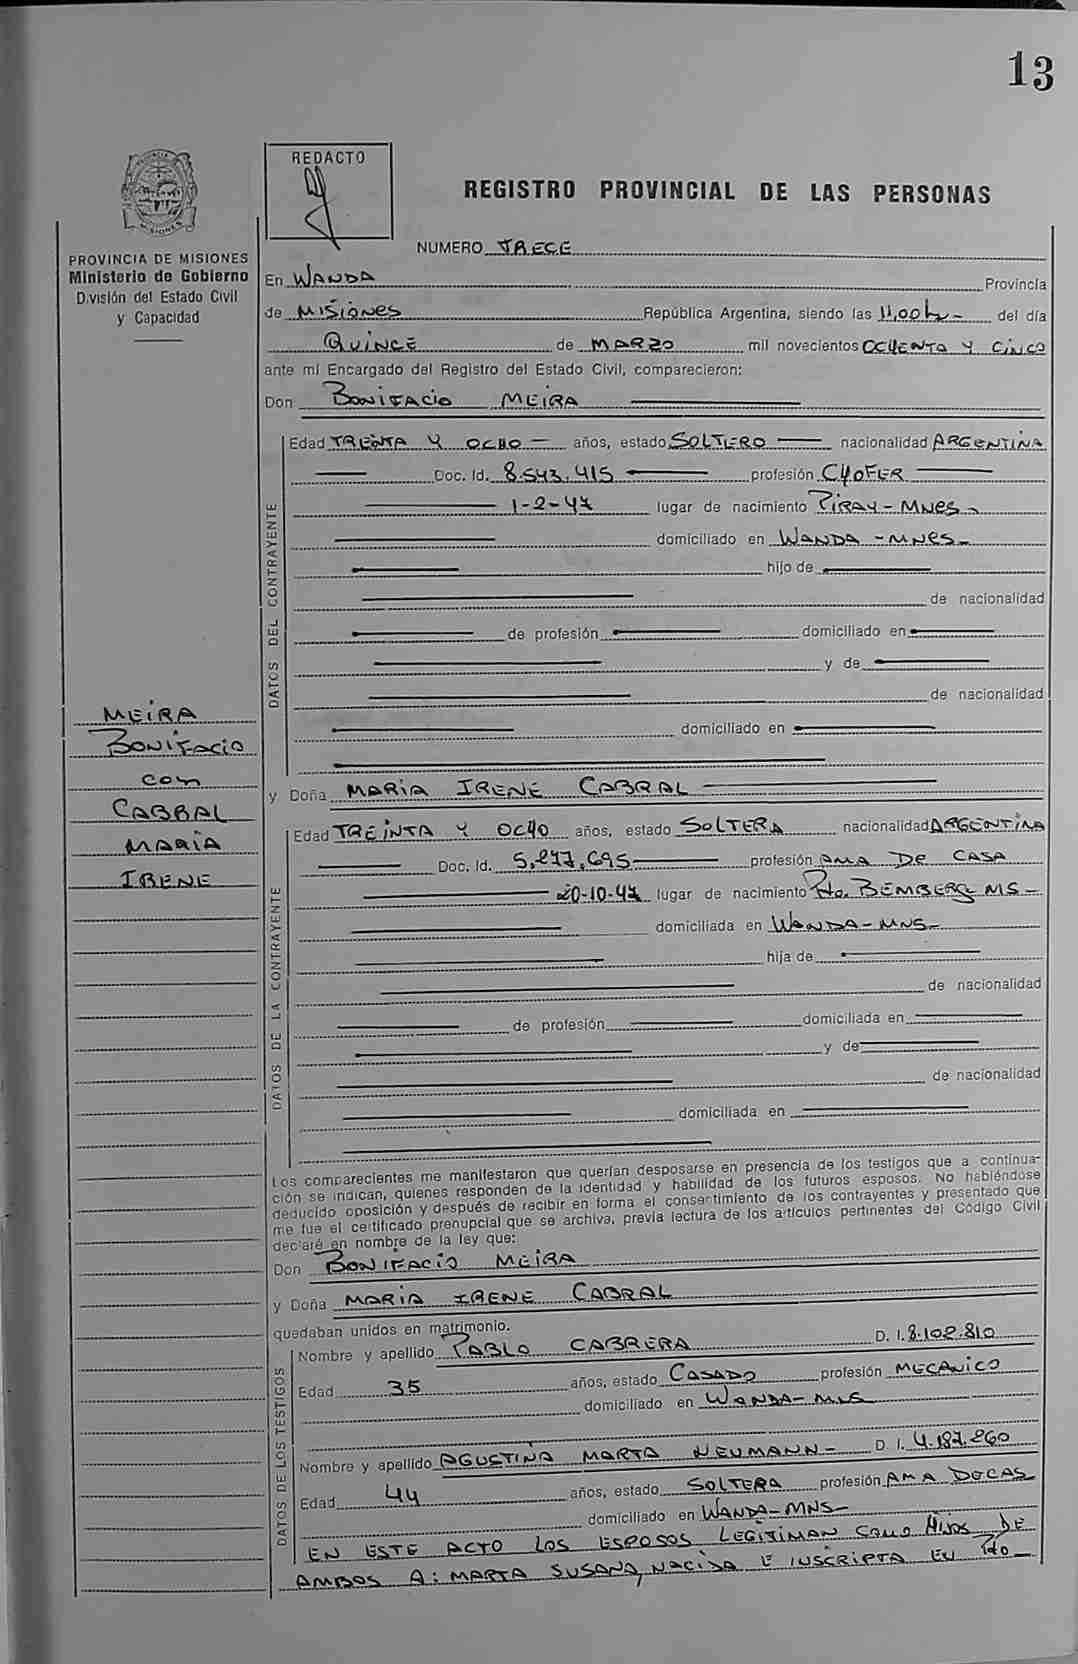 13
REDACTO
REGISTRO PROVINCIAL DE LAS PERSONAS
NUMERO TRECE
PROVINCIA DE MISIONES
Ministerio de Gobierno
División del Estado Civil
y Capacidad
En WANDA Provincia
de MISIONES República Argentina, siendo las 11,00 hs - del día
QUINCE de MARZO mil novecientos OCHENTA Y CINCO
ante mí Encargado del Registro del Estado Civil, comparecieron:
Don BONIFACIO MEIRA
DATOS DEL CONTRAYENTE
Edad TREINTA Y OCHO - años, estado SOLTERO nacionalidad ARGENTINA
Doc. Id. 8.543.415 profesión CHOFER
1-2-47 lugar de nacimiento PIRAY - MNES -
domiciliado en WANDA - MNES -
hijo de
de nacionalidad
de profesión domiciliado en
y de
de nacionalidad
domiciliado en
MEIRA
BONIFACIO
con
CABRAL
MARIA
IRENE
y Doña MARIA IRENE CABRAL
DATOS DE LA CONTRAYENTE
Edad TREINTA Y OCHO años, estado SOLTERA nacionalidad ARGENTINA
Doc. Id. 5.277.695 profesión AMA DE CASA
20-10-47 lugar de nacimiento Pto. BEMBERG MS -
domiciliada en WANDA - MNS -
hija de
de nacionalidad
de profesión domiciliada en
y de
de nacionalidad
domiciliada en
Los comparecientes me manifestaron que querían desposarse en presencia de los testigos que a continua-
ción se indican, quienes responden de la identidad y habilidad de los futuros esposos. No habiéndose
deducido oposición y después de recibir en forma el consentimiento de los contrayentes y presentado que
me fue el certificado prenupcial que se archiva, previa lectura de los artículos pertinentes del Código Civil
declaré en nombre de la ley que:
Don BONIFACIO MEIRA
y Doña MARIA IRENE CABRAL
quedaban unidos en matrimonio.
DATOS DE LOS TESTIGOS
Nombre y apellido PABLO CABRERA D. I. 8.102.810
Edad 35 años, estado CASADO profesión MECANICO
domiciliado en WANDA - MNS
Nombre y apellido AGUSTINA MARTA NEUMANN - D. I. 4.187.260
Edad 44 años, estado SOLTERA profesión AMA DECAS
domiciliado en WANDA - MNS -
EN ESTE ACTO LOS ESPOSOS LEGITIMAN COMO HIJOS DE
AMBOS A: MARTA SUSANA, NACIDA E INSCRIPTA EN Pto -